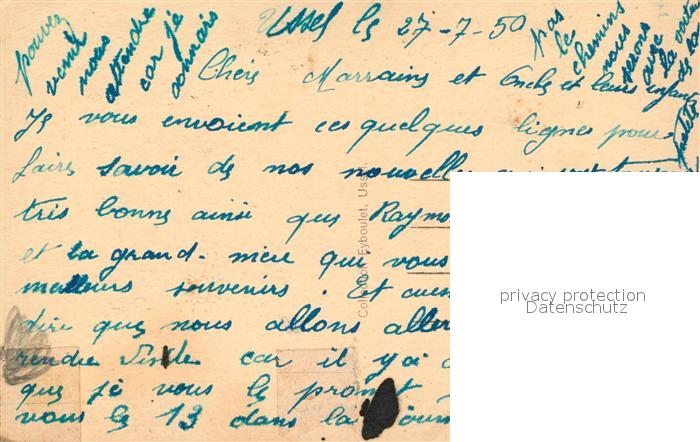 Ussel le 27-7-50
Chers Marraine et Oncle et leurs enfants
Je vous envoient ces quelques lignes pour
faire savoir de nos nouvelle qui sont toujours
très bonne ainsi que Raymo
et la grand-mère qui vous
meilleurs souvenirs. Et aussi
dire que nous allons aller
rendre visite car il y a
que je vous le promet
vous le 13 dans la journ
pouvez
venir
nous
attendre
car je
connais
pas
le
chemins
nous
serons
avec
la
de
Collection Eyboulet, Ussel.
privacy protection
Datenschutz